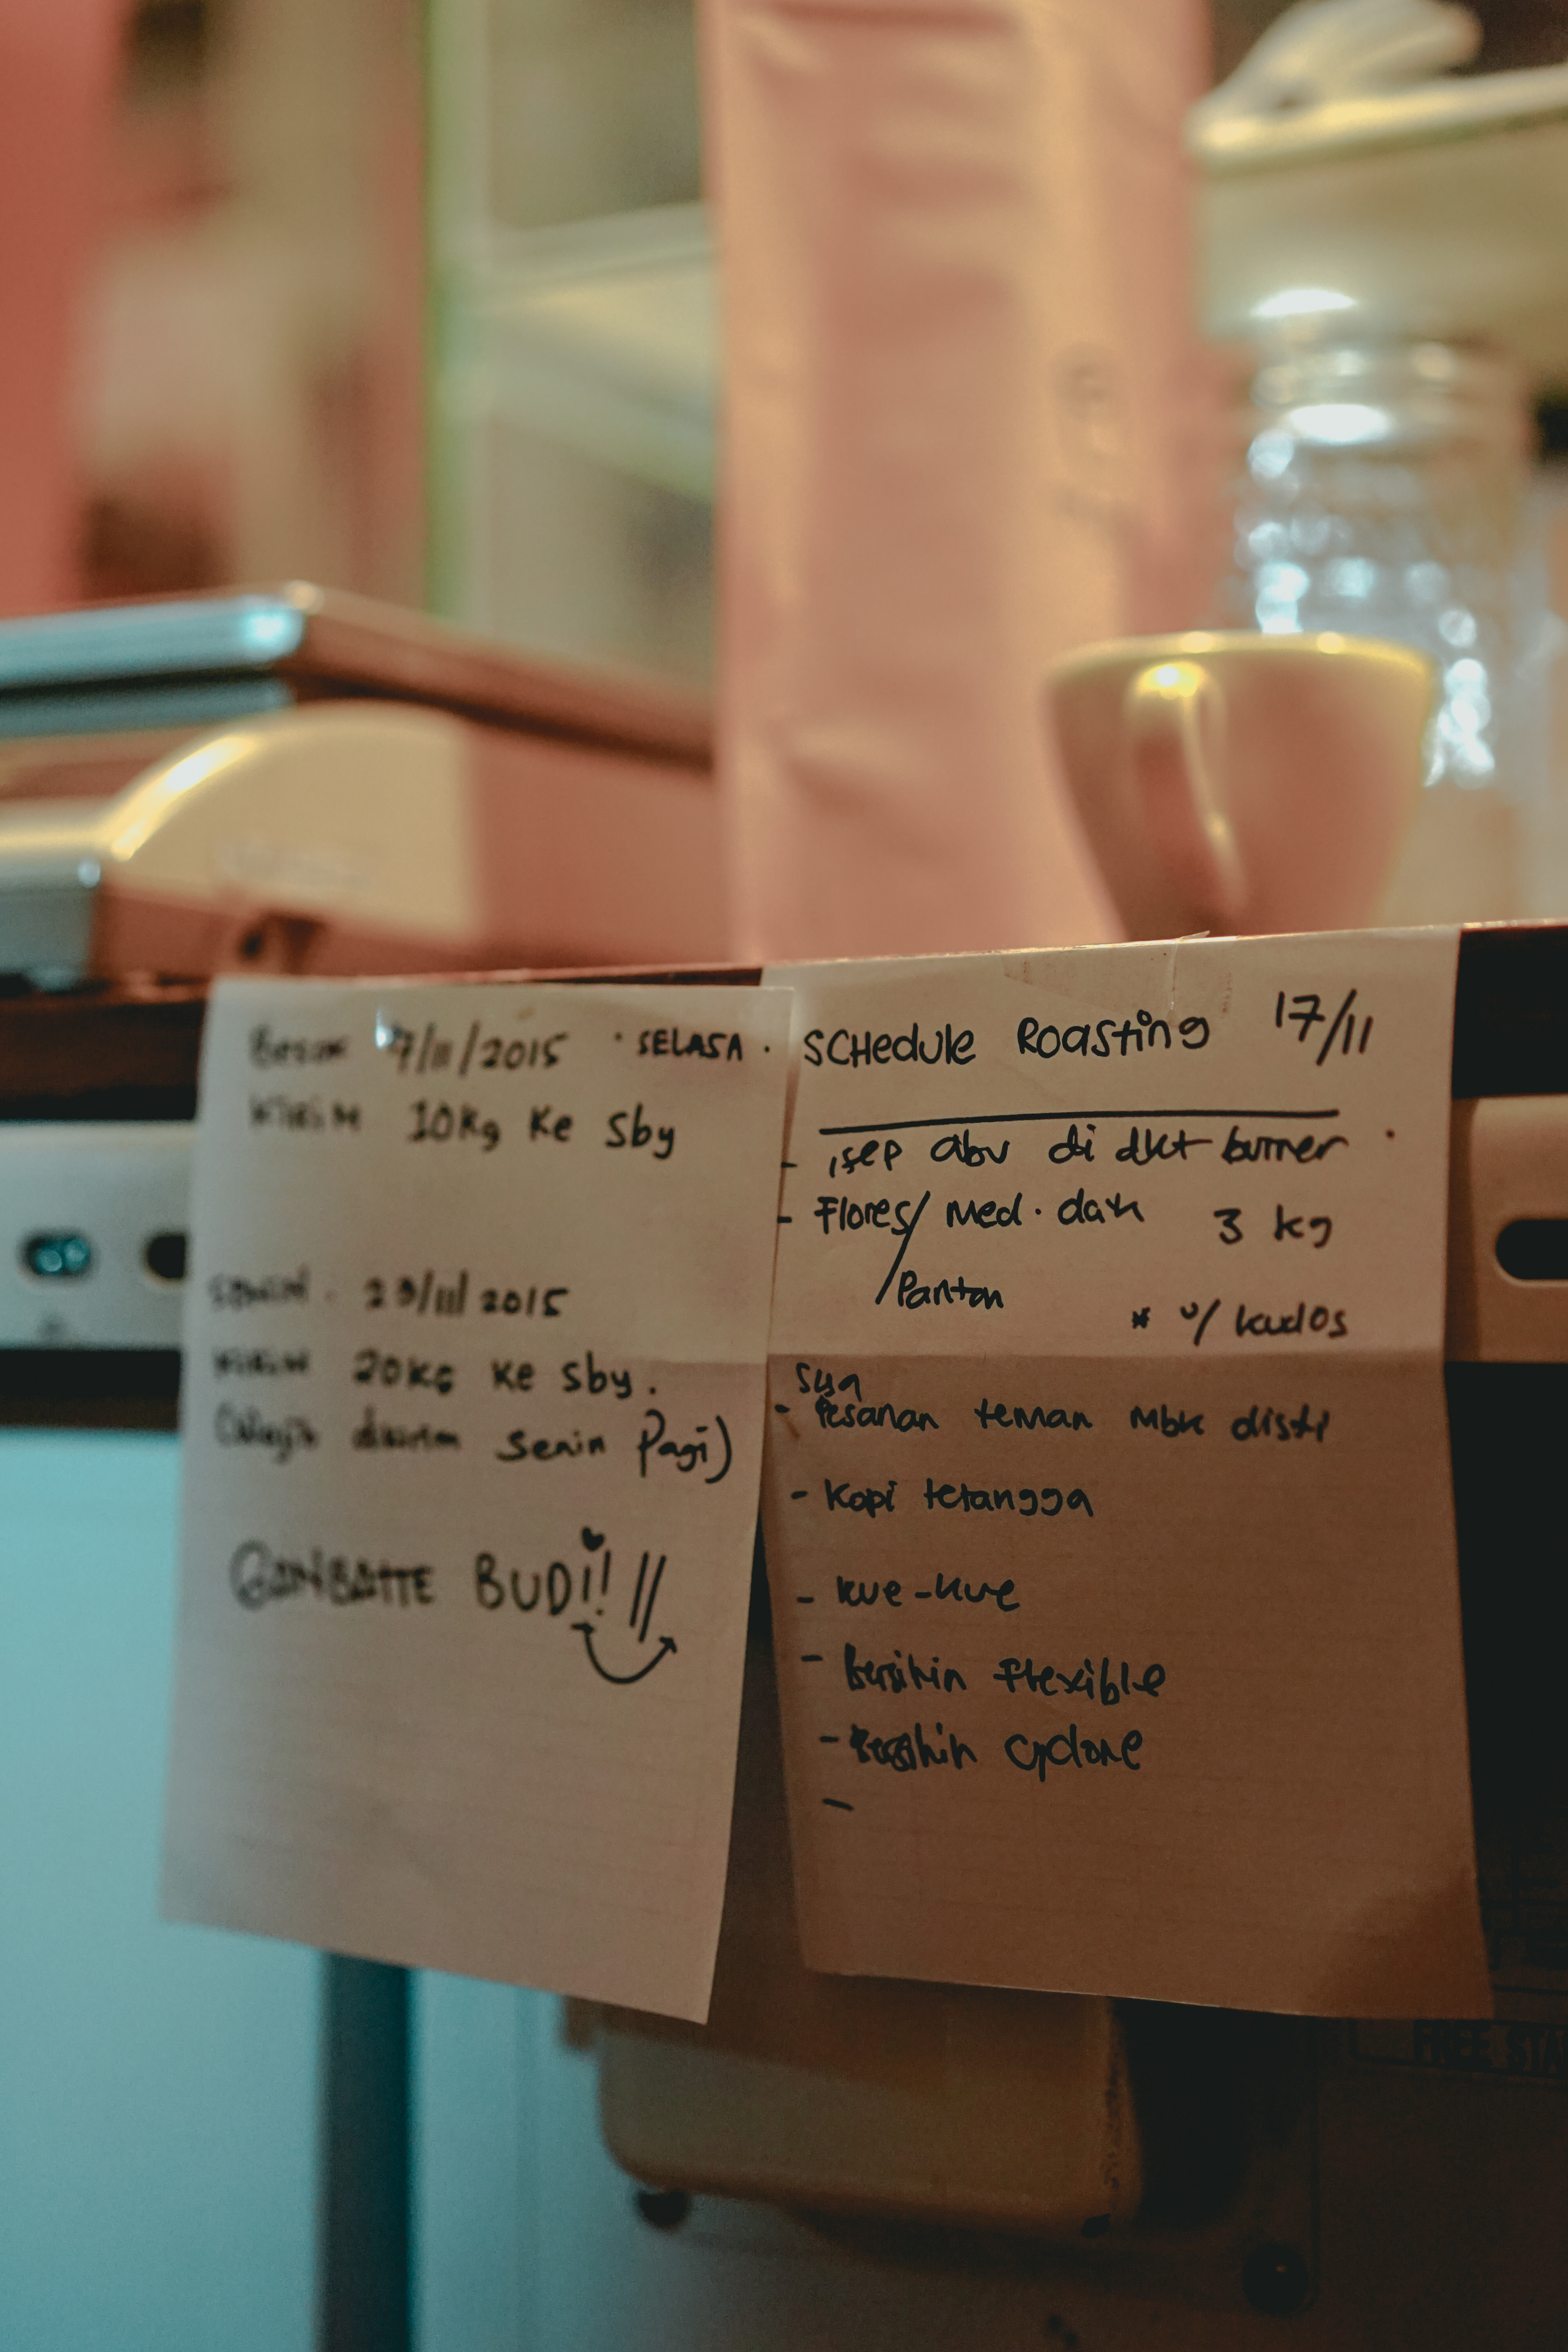 Besok 17/11/2015 · SELASA ·
KIRIM 10Kg Ke Sby
SENIN . 23/11/2015
KIRIM 20KG Ke Sby.
(Wajib dikirim Senin Pagi)
GANBATTE BUDI!! //
SCHedule Roasting 17/11
- isep abu di dkt burner .
- Flores/ Med. dark 3 kg
/Panton
* u/ kudos
Sya
- Pesanan teman Mbk disti
- Kopi tetangga
- kue-kue
- bersihin flexible
- bersihin cyclone
-
FREE STA